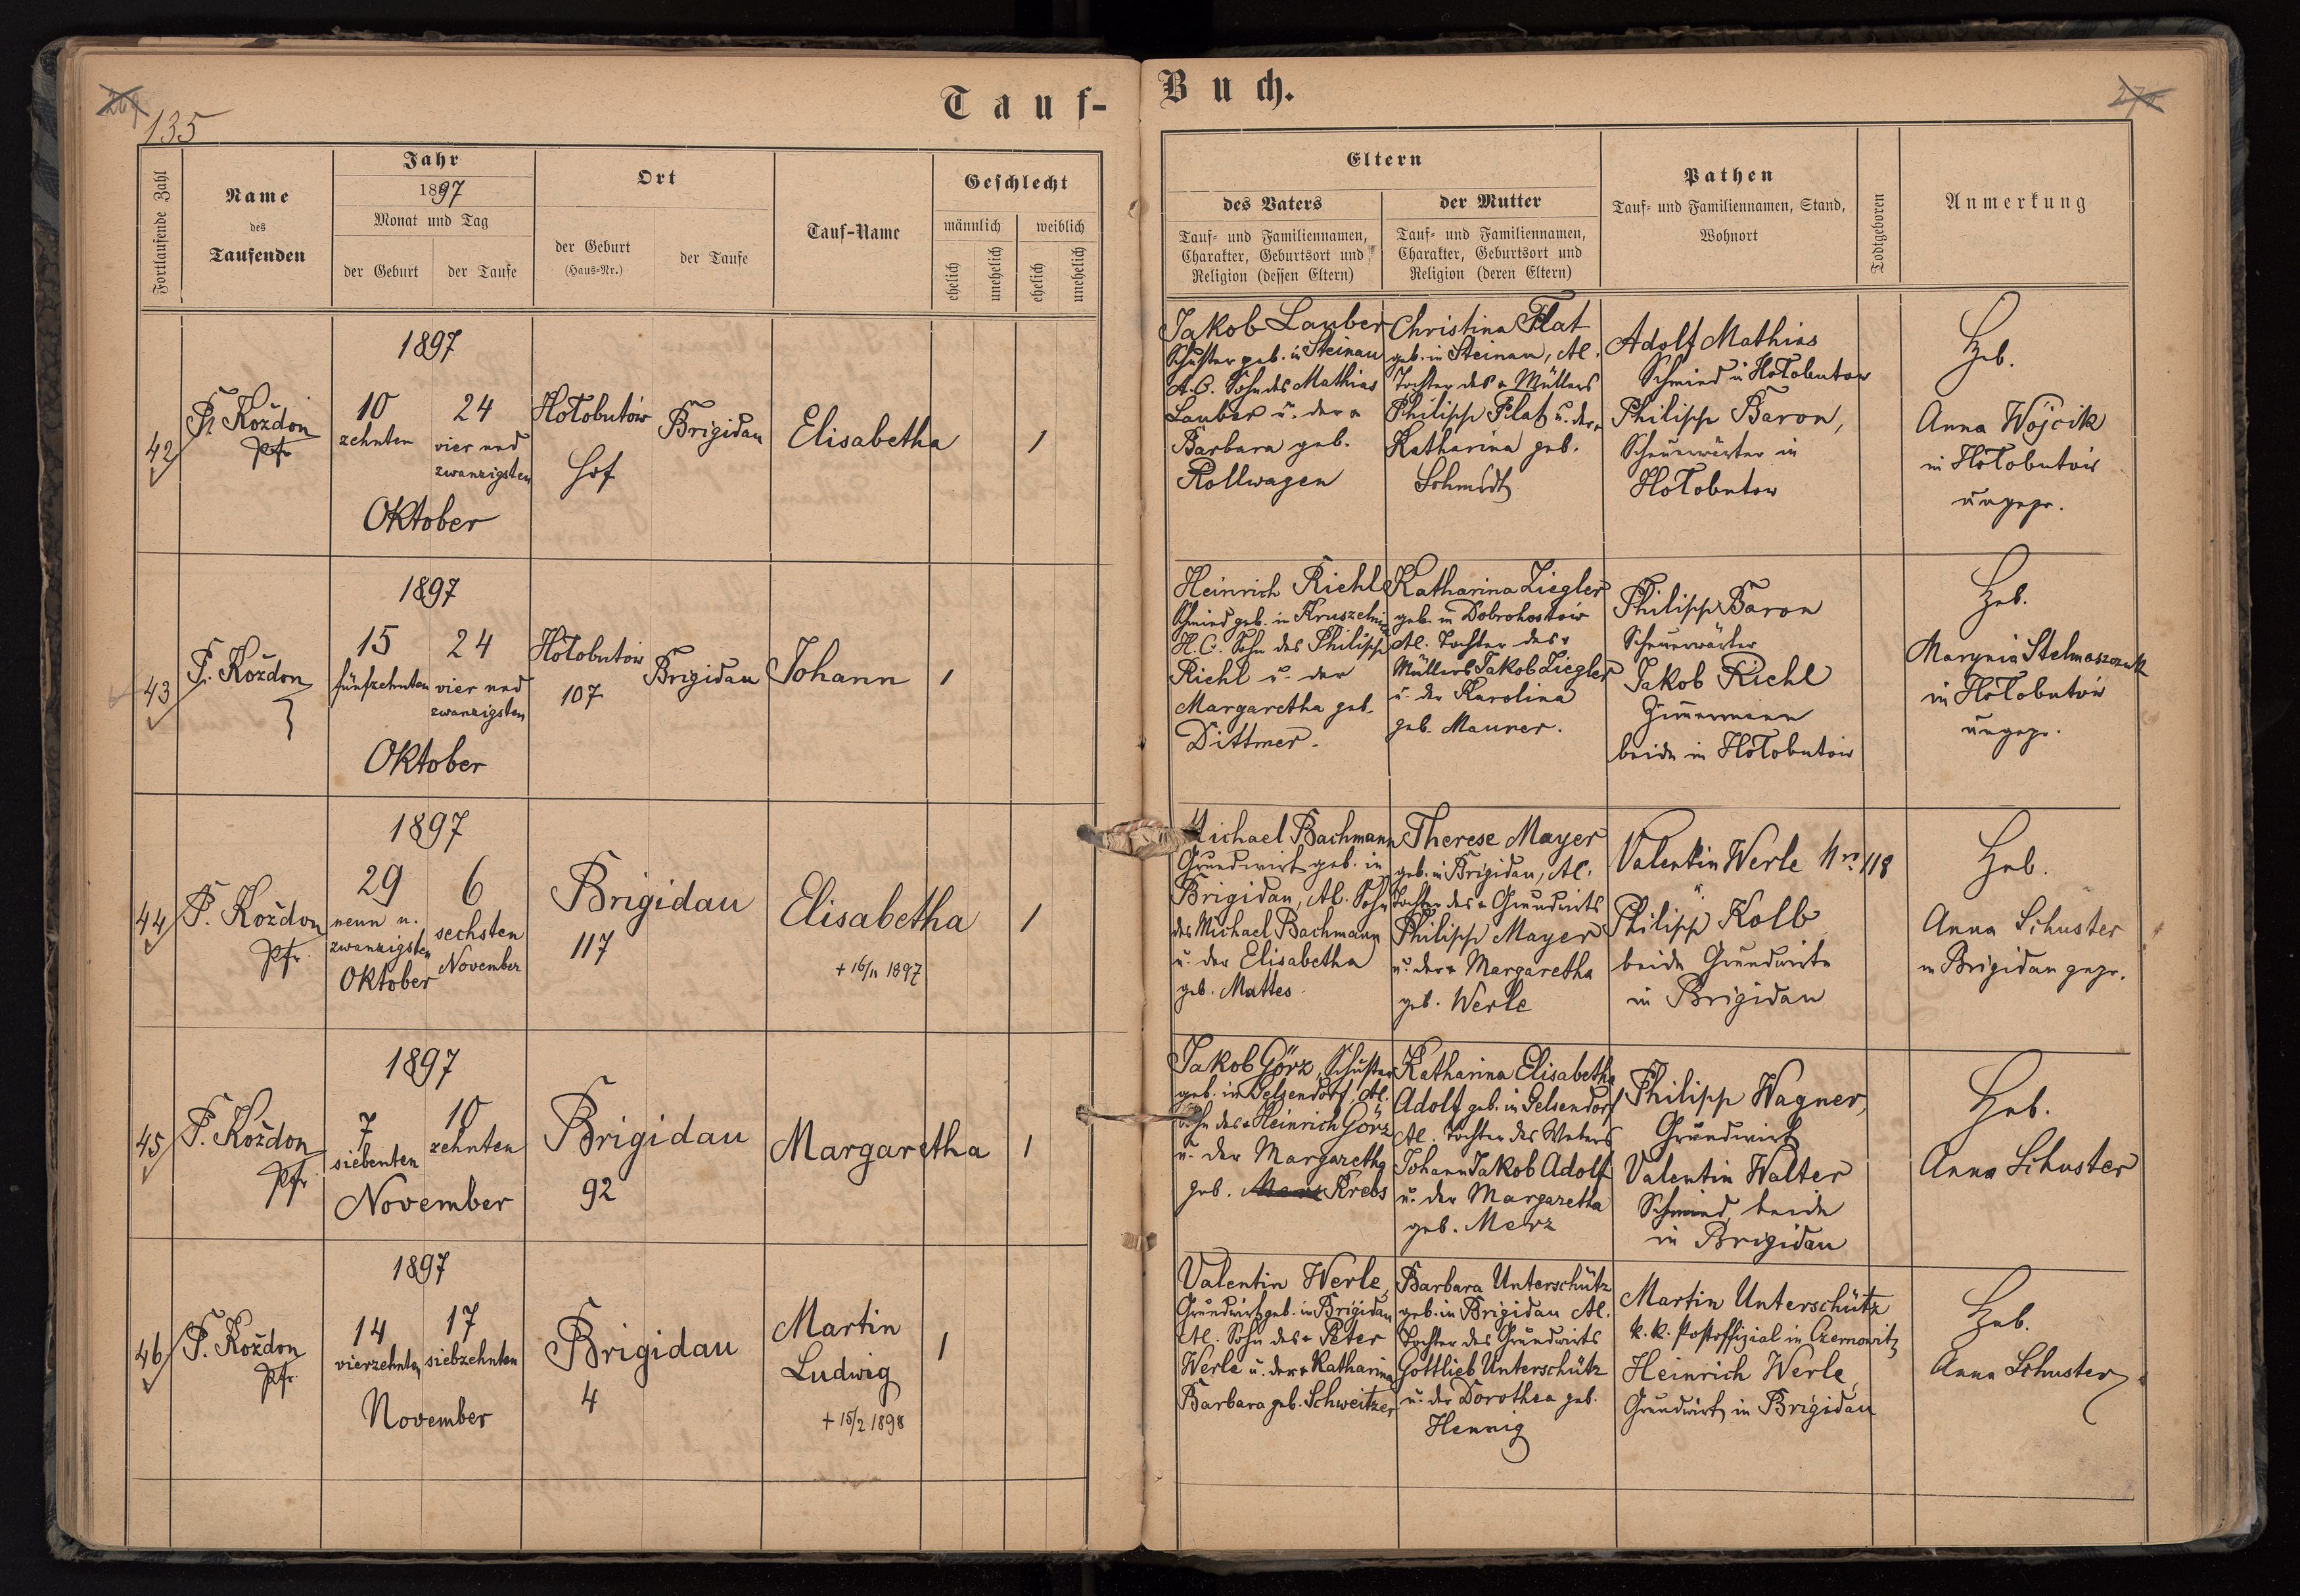 Tauf-
Buch.
135
Fortlaufende Zahl
Name
des
Taufenden
Jahr
1897
Monat und Tag
der Geburt
der Taufe
Ort
der Geburt
(Haus-Nr.)
der Taufe
Tauf-Name
Geschlecht
männlich
weiblich
ehelich
unehelich
ehelich
unehelich
Eltern
des Vaters
Tauf- und Familiennamen,
Charakter, Geburtsort und
Religion (dessen Eltern)
der Mutter
Tauf- und Familiennamen,
Charakter, Geburtsort und
Religion (deren Eltern)
Pathen
Tauf- und Familiennamen, Stand,
Wohnort
Todtgeboren
Anmerkung
42
Koždon
Pfr
1897
10
zehnten
24
vier und
zwanzigsten
Oktober
Hołobutów
Hof
Brigidau
Elisabetha
1
Jakob Lauber
Schuster geb. in Steinau
A.C. Sohn des Mathias
Lauber u. der
Barbara geb.
Rollwagen
Christina Flat
geb. in Steinau, AC.
Tochter des Müllers
Philipp Flat u. der
Katharina geb.
Schmidt
Adolf Mathias
Schmied in Hołobutow
Philipp Baron,
Scheuerwärter in
Hołobutow
Heb.
Anna Wojcik
in Hołobutów
ungepr.
43
P. Koždon
1897
15
fünfzehnten
24
vier und
zwanzigsten
Oktober
Hołobutów
107
Brigidau
Johann
1
Heinrich Riehl
Schmied geb. in
H.C. Sohn des Philipp
Riehl u. der
Margaretha geb.
Dittmer.
Katharina Ziegler
geb. in Dobrohostów
AC. Tochter des
Müllers Jakob Ziegler
u. der Karolina
geb. Maurer.
Philipp Baron
Scheuerwärter
Jakob Riehl
Zimmermann
beide in Hołobutów
Heb.
Marynia Stelmaszczuk
in Hołobutów
ungepr.
44
P. Koždon
Pfr.
1897
29
neun u.
zwanzigsten
Oktober
6
sechsten
November
Brigidau
117
Elisabetha
+ 16/11 1897
1
Michael Bachmann
Grundwirt geb. in
Brigidau, AC. Sohn
des Michael Bachmann
u. der Elisabetha
geb. Mattes.
Therese Mayer
geb. in Brigidau, AC.
Tochter des Grundwirts
Philipp Mayer
u. der Margaretha
geb. Werle
Valentin Werle Nro 118
u
Philipp Kolb
beide Grundwirte
in Brigidau
Heb.
Anna Schuster
in Brigidau gepr.
45
P. Koždon
Pfr.
1897
7
siebenten
10
zehnten
November
Brigidau
92
Margaretha
1
Jakob Görz, Schuster
geb. in Gelsendorf, AC.
Sohn des Heinrich Görz
u. der Margaretha
geb. Krebs
Katharina Elisabetha
Adolf geb. in Gelsendorf
AC. Tochter des Webers
Johann Jakob Adolf
u. der Margaretha
geb. Merz
Philipp Wagner,
Grundwirt
Valentin Walter
Schmied, beide
in Brigidau
Heb.
Anna Schuster
46
P. Koždon
Pfr.
1897
14
vierzehnten
17
siebzehnten
November
Brigidau
4
Martin
Ludwig
+ 15/2 1898
1
Valentin Werle,
Grundwirt geb. in Brigidau
AC. Sohn des Peter
Werle u. der Katharina
Barbara geb. Schweitzer
Barbara Unterschütz
geb. in Brigidau AC.
Tochter des Grundwirts
Gottlieb Unterschütz
u. der Dorothea geb.
Hennig
Martin Unterschütz
k. k. Postoffizial in Czernowitz
Heinrich Werle,
Grundwirt in Brigidau
Heb.
Anna Schuster